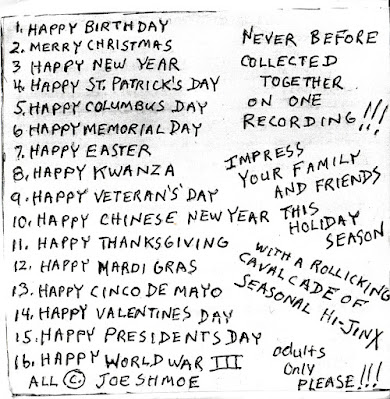 1. HAPPY BIRTHDAY
2. MERRY CHRISTMAS
3 HAPPY NEW YEAR
4. HAPPY ST. PATRICK'S DAY
5. HAPPY COLUMBUS DAY
6 HAPPY MEMORIAL DAY
7. HAPPY EASTER
8. HAPPY KWANZA
9. HAPPY VETERAN'S DAY
10. HAPPY CHINESE NEW YEAR
11. HAPPY THANKSGIVING
12. HAPPY MARDI GRAS
13. HAPPY CINCO DE MAYO
14. HAPPY VALENTINES DAY
15. HAPPY PRESIDENTS DAY
16. HAPPY WORLD WAR III
ALL © JOE SHMOE
NEVER BEFORE
COLLECTED
TOGETHER
ON ONE
RECORDING!!!
IMPRESS
YOUR FAMILY
AND FRIENDS
THIS
HOLIDAY
SEASON
WITH A ROLLICKING
CAVALCADE OF
SEASONAL HI-JINX
adults
only
PLEASE!!!